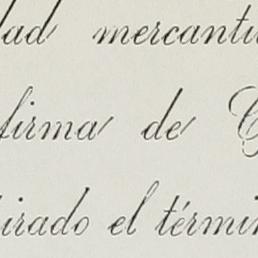 dad mercanti
firma de C
irado el términ